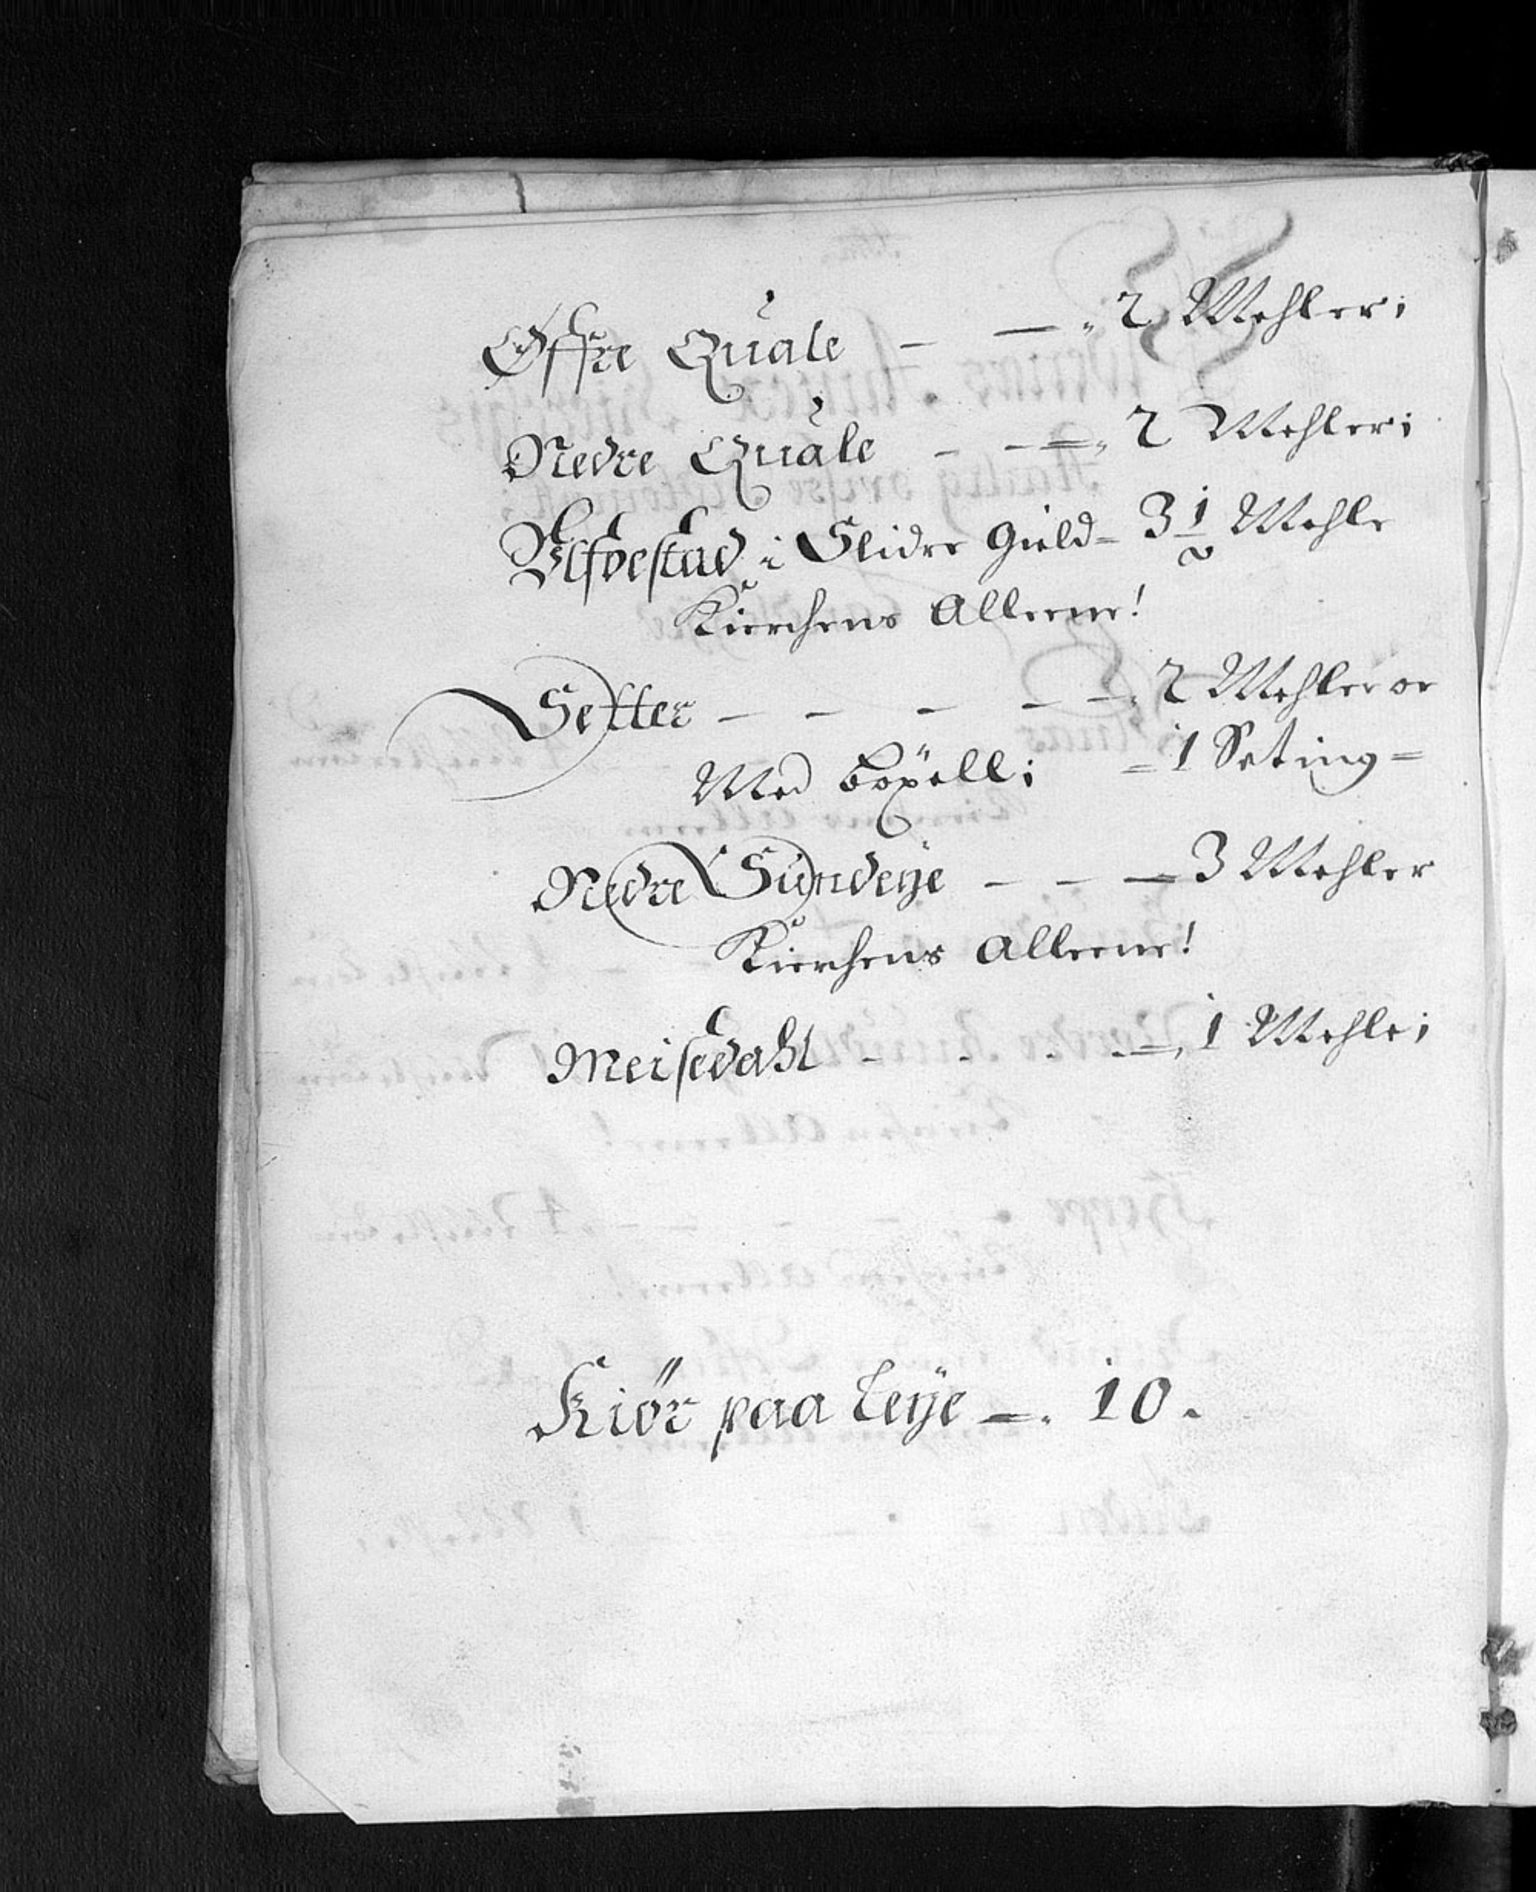 Øffre Quale — — 2 Mehler;
Nedre Quale - - = 2 Mehler;
Ulfvestad i Slidre Gield = 3 1/2 Mehle
Kierchens Alleene!
Setter — — — — — 2 Mehler oc
Med böxell; = 1 Seting =
Nedre Sundeye — — — 3 Mehler
Kierchens Alleene!
Meisedahl - - - = 1 Mehle;
Kiör paa Leye = . 10 .